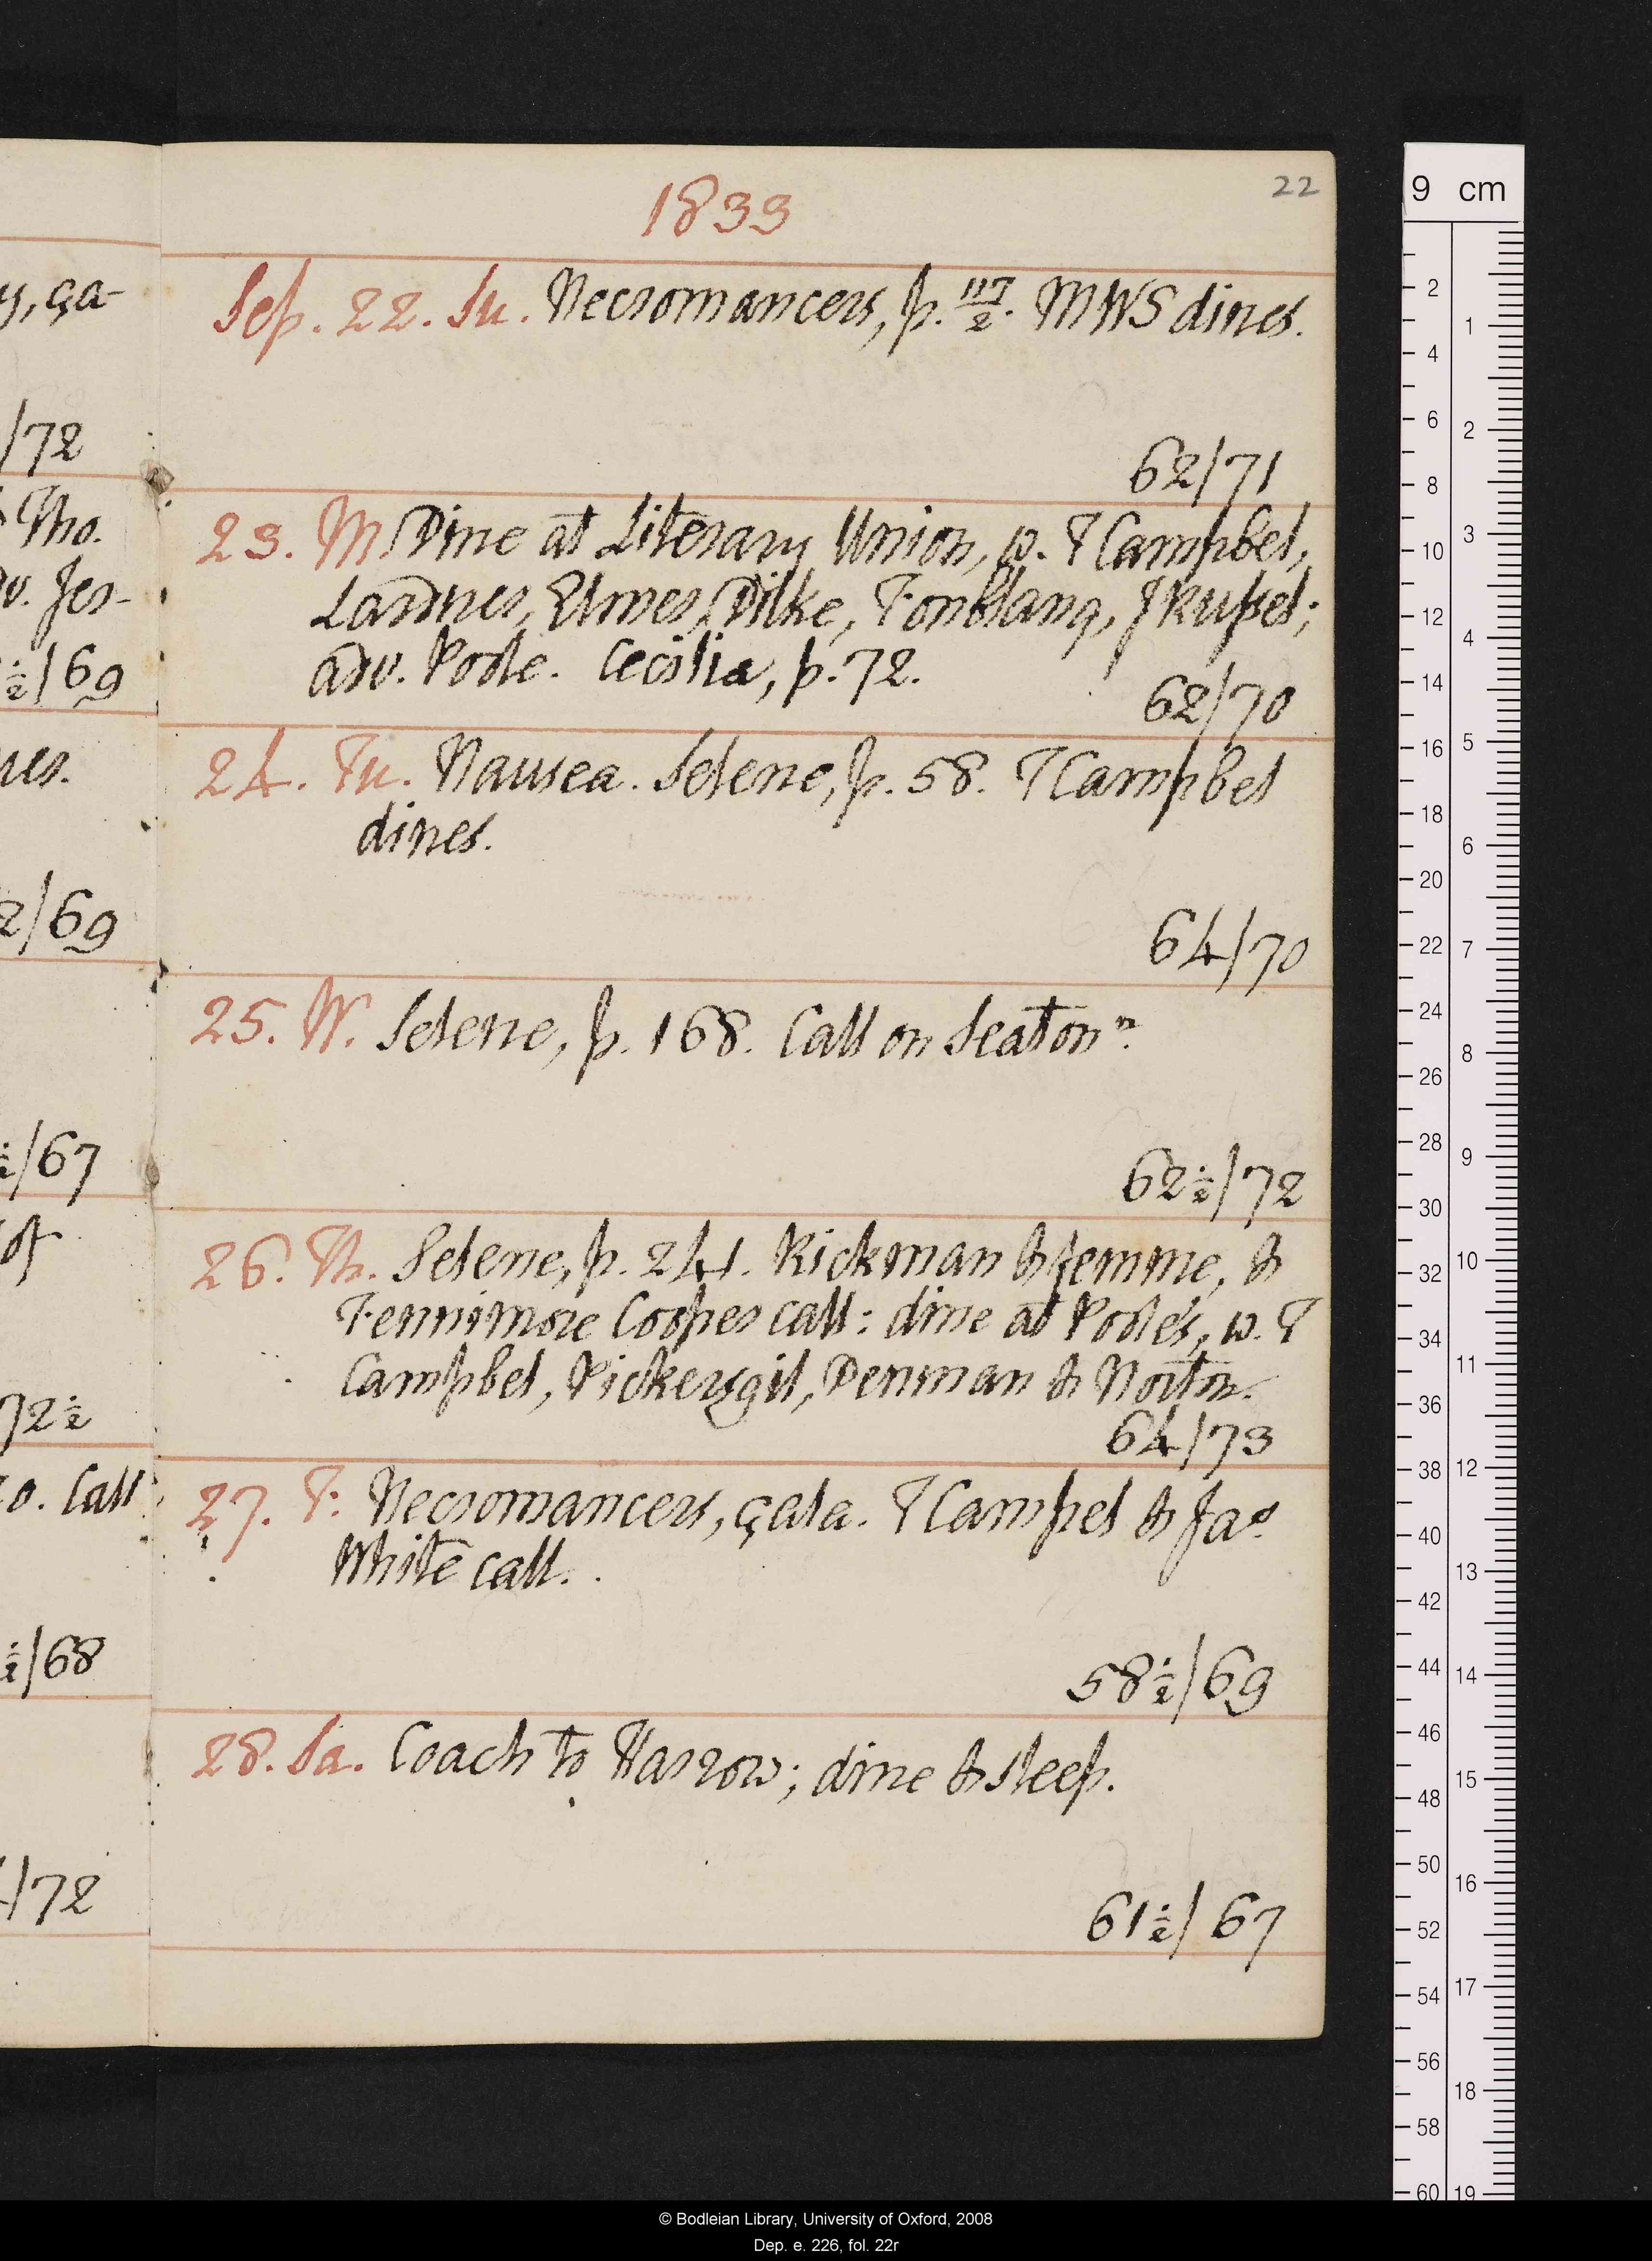 22
1833
y, ça-
Sep. 22. Su. Necromancers, p. 117/2. MWS dines.
/72
62/71
Tho.
23. M. Dine at Literary Union, w. T Campbel,
v. Jer-
Lardner, Elmes, Dilke, Fonblanq, J Russel;
adv. Poole. Cecilia, p. 72.
½/69
62/70
24. Tu. Nausea. Selene, p. 58. T Campbel
dines.
2/69
64/70
25. W. Selene, p. 168. Call on Seatonⁿ.
½/67
62½/72
26. Th. Selene, p. 241. Rickman & femme, &
Fennimore Cooper call: dine at Poole's, w. T
Campbel, Pickersgil, Denman & Norton.
72½
64/73
0. Call
27. F. Necromancers, çala. T Campbel & Jaˢ
White call.
½/68
58½/69
28. Sa. Coach to Harrow; dine & sleep.
/72
61½/67
9 cm
2
4
6
8
10
12
14
16
18
20
22
24
26
28
30
32
34
36
38
40
42
44
46
48
50
52
54
56
58
60
1
2
3
4
5
6
7
8
9
10
11
12
13
14
15
16
17
18
19
© Bodleian Library, University of Oxford, 2008
Dep. e. 226, fol. 22r